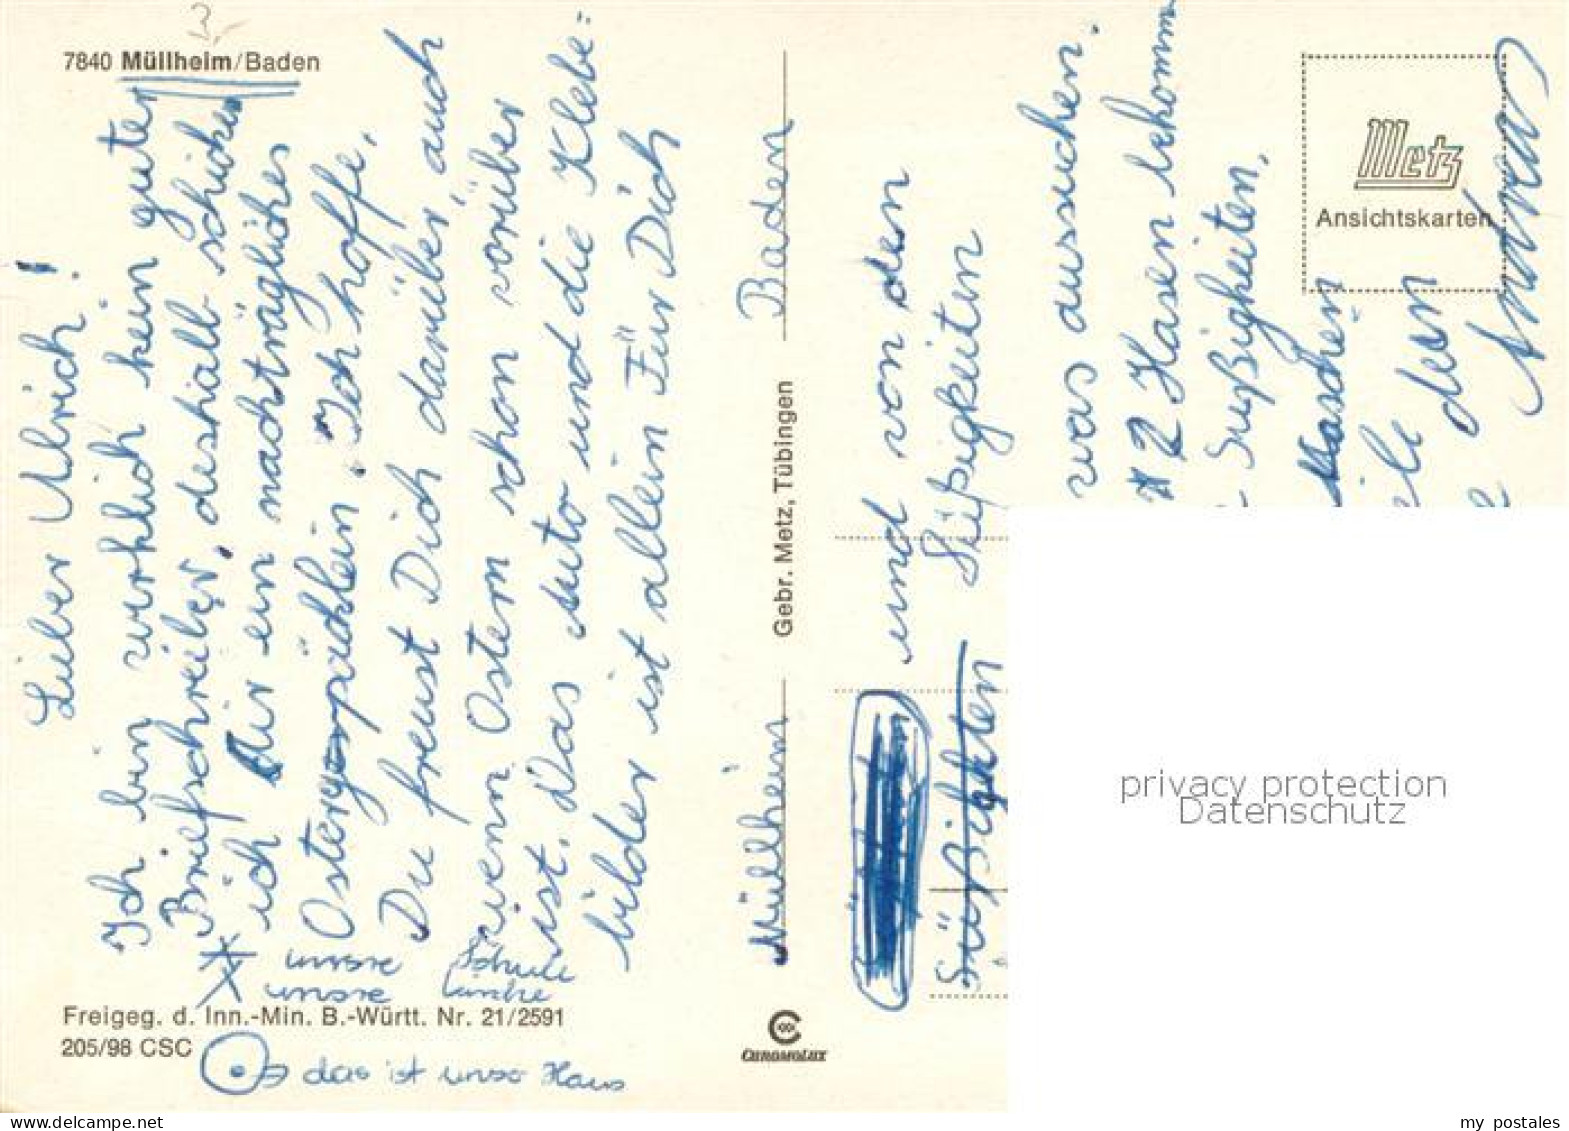 7840 Müllheim/Baden
Lieber Ulrich!
Ich bin wirklich kein guter
Briefschreiber, deshalb schicke
ich Dir ein nachträgliches
Ostergespäcklein. Ich hoffe,
Du freust Dich darüber, auch
wenn Ostern schon vorüber
ist. Das Auto und die Klebe=
bilder ist allein Für Dich
unsre Schule
unsre Kirche
Freigeg. d. Inn.-Min. B.-Württ. Nr. 21/2591
205/98 CSC
das ist unser Haus
Müllheim Baden
Gebr. Metz, Tübingen
CHROMOLUX
und von den
Süßigkeiten
Süßigkten
was aussuchen.
2 Hasen bekomm
Süßigkeiten,
naschen
ele
dein
Andreas
Metz
Ansichtskarten
privacy protection
Datenschutz
my postales